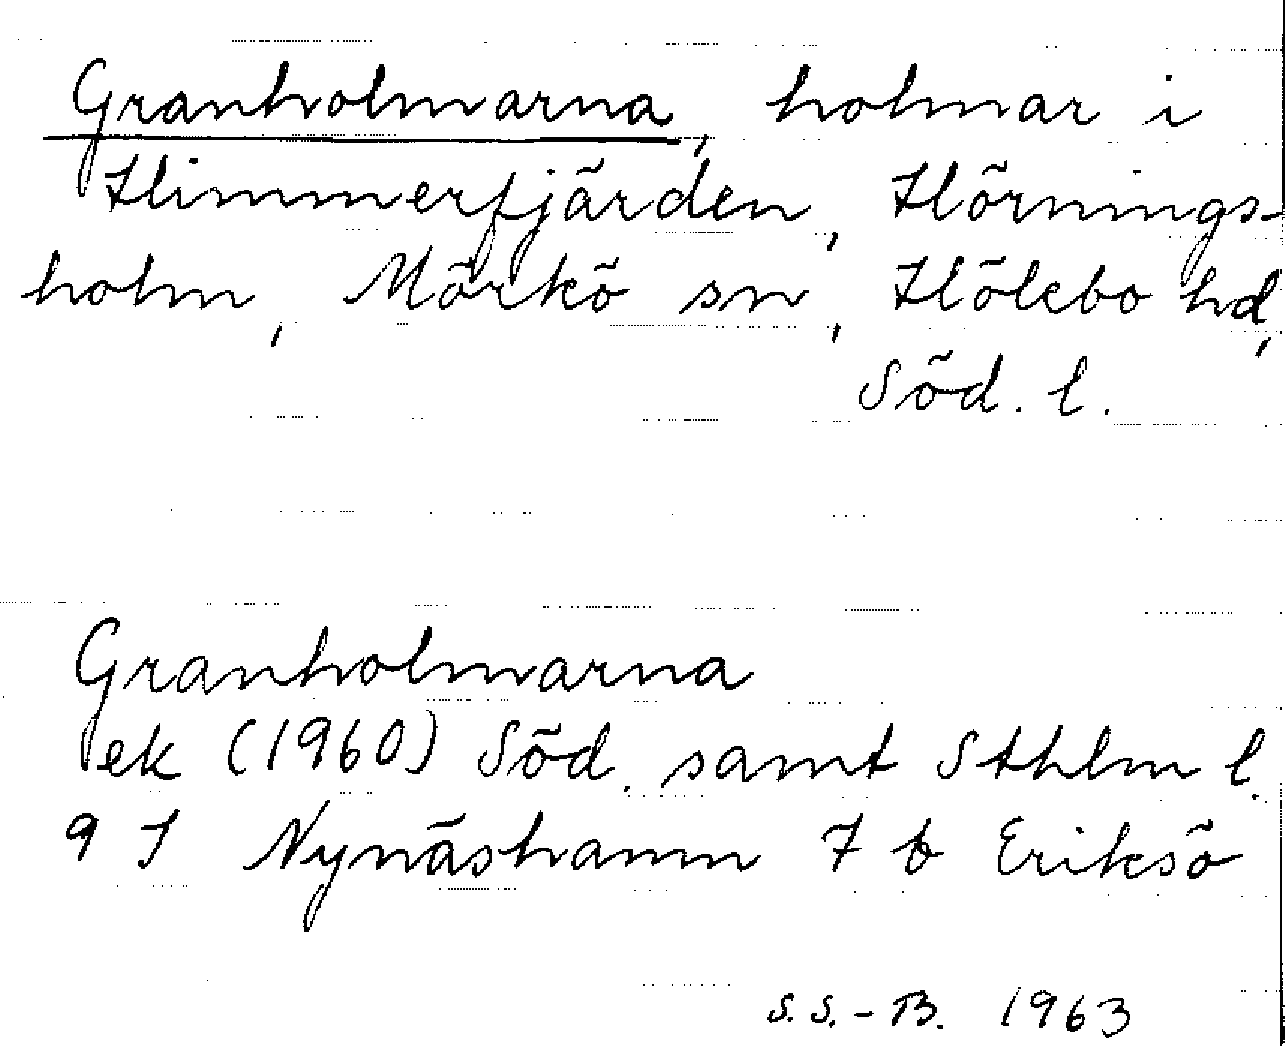 Granholmarna, holmar i
Himmerfjärden, Hörnings-
holm, Mörkö sn, Hölebo hd,
Söd. l.
Granholmarna
ek (1960) Söd. samt Sthlm l.
9 I Nynäshamn 7 b Eriksö
S.S.-B. 1963